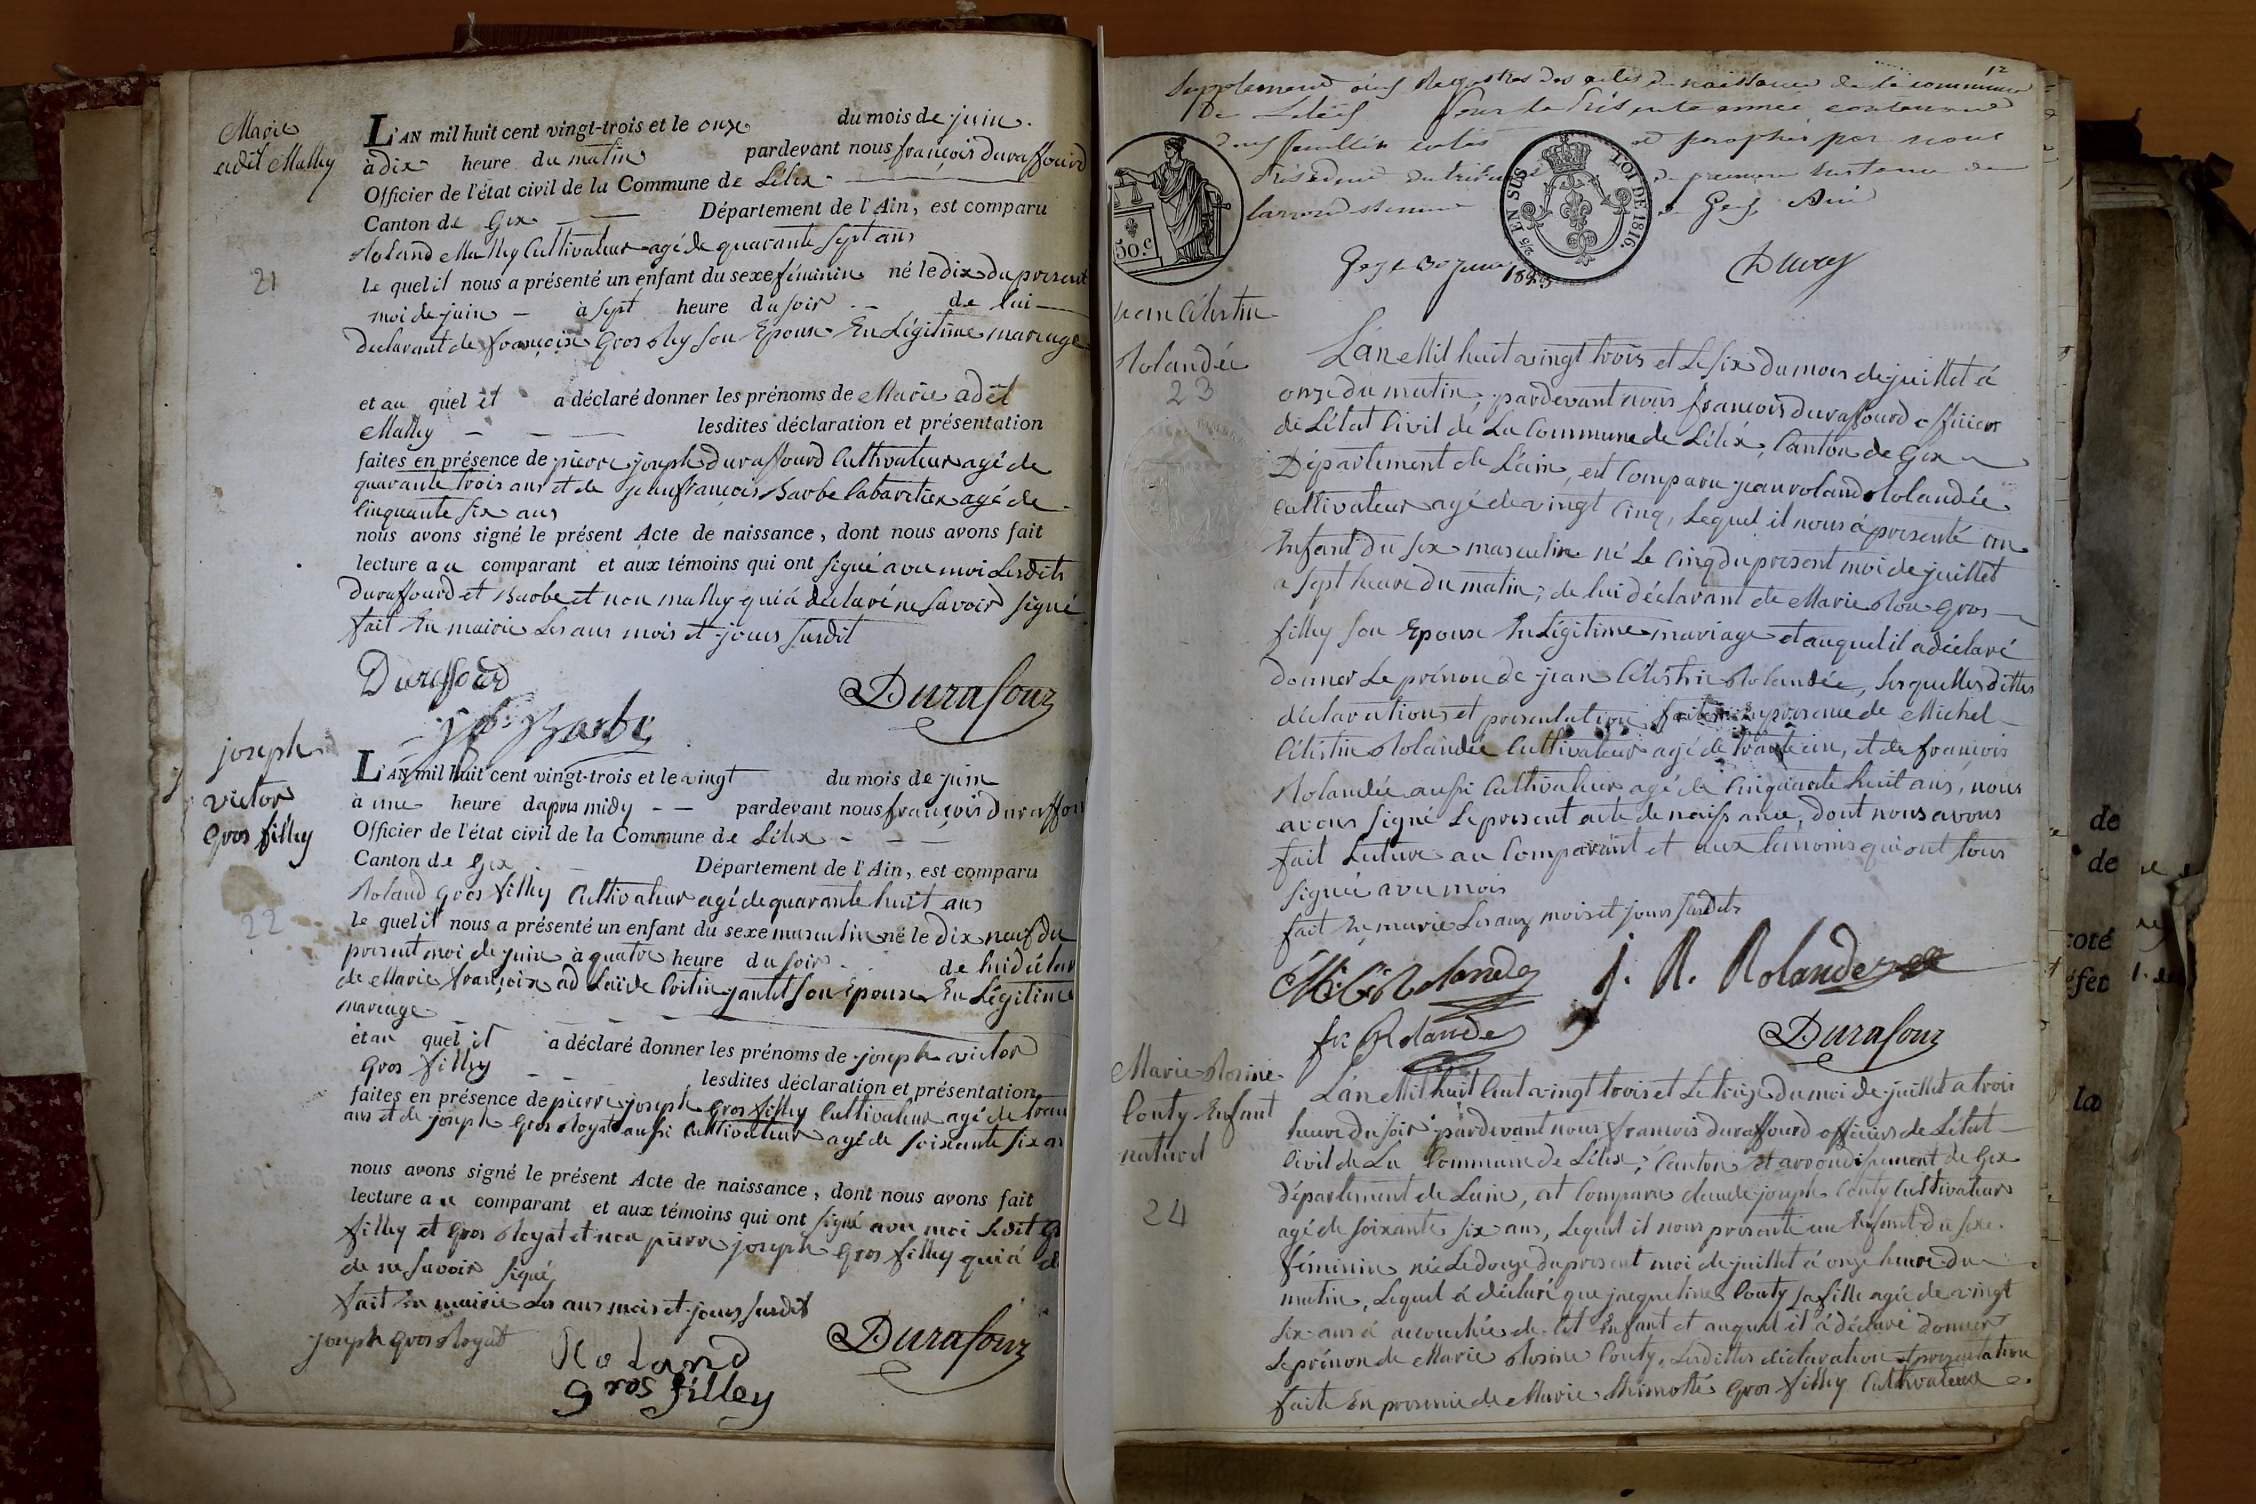 Marie
adèl Malley
21
L'AN mil huit cent vingt-trois et le onze du mois de juin.
à dix heure du matin pardevant nous françois duraffourd
Officier de l'état civil de la Commune de Lélex
Canton de Gex Département de l'Ain, est comparu
Roland Malley Cultivateur agé de quarante sept ans
le quel il nous a présenté un enfant du sexe féminin né le dix du présent
moi de juin à sept heure du soir de lui
déclarant de françoise Gros Rey son Epouse En Légitime mariage
et au quel il a déclaré donner les prénoms de Marie adèl
Malley lesdites déclaration et présentation
faites en présence de pierre joseph duraffourd Cultivateur agé de
quarante trois ans et de jean françois Barbe Cabaretier agé de
Cinquante six ans
nous avons signé le présent Acte de naissance, dont nous avons fait
lecture au comparant et aux témoins qui ont signé avec moi Lesdits
duraffourd et Barbe et non malley qui à déclaré ne savoir signé
fait En mairie Les ans mois et jours susdit
Duraffourd
Durafour
Barbe
joseph
victor
Gros filley
22
L'AN mil huit cent vingt-trois et le vingt du mois de juin
à une heure dapres midy pardevant nous françois duraffou
Officier de l'état civil de la Commune de Lélex
Canton de Gex Département de l'Ain, est comparu
Roland Gros filley Cultivateur agé de quarante huit ans
le quel il nous a présenté un enfant du sexe masculin né le dix neuf du
présent moi de juin à quatre heure du soir de lui déclar
de Marie françoise adélaïde son épouse En Légitime
mariage
et au quel il a déclaré donner les prénoms de joseph victor
Gros filley lesdites déclaration et présentation
faites en présence de pierre joseph Gros filley Cultivateur agé de
ans et de joseph Gros Royat aussi Cultivateur agé de soixante six an
nous avons signé le présent Acte de naissance, dont nous avons fait
lecture au comparant et aux témoins qui ont signé avec moi Ledit
filley et Gros Royat et non pierre joseph Gros filley qui à
de ne savoir signé
fait En mairie Les ans mois et jours susdit
joseph gros Royat
Roland
gros filley
Durafour
12
Supplement aux Registres des actes de naissance de la commune
de Lélex pour la présente année contenant
deux feuillets cotés et paraphés par nous
Président du tribunal de premiere instance de
larrondissement de Gex, Ain
Gex le 30 juin 1823
50.C
25 EN SUS
LOI DE 1816.
jean Célestin
Rolandée
23
L'an Mil huit vingt trois et Le six du mois de juillet à
onze du matin, pardevant nous françois duraffourd officier
de L'état Civil de La Commune de Lélex, Canton de Gex
Département de L'ain, est Comparu jean roland Rolandée
cultivateur agé de vingt Cinq, Lequel il nous à présenté un
Enfant du sex masculin né Le Cinq du present moi de juillet
a sept heure du matin; de lui déclarant de Marie Rose Gros
filley son Epouse En Légitime mariage et auquel il a déclaré
donner Le prénon de jean Célestin Rolandée, Lesquelles dittes
déclarations et présentation faite En présence de Michel
Célestin Rolandée Cultivateur agé de ans, et de françois
Rolandée aussi Cultivateur agé de Cinquante huit ans, nous
avons signé Le présent acte de naissance, dont nous avons
fait Lecture au Comparant et aux témoins qui ont tous
signé avec mois
fait En mairie Les ans mois et jours susdits
M. C. Rolandez
J. R. Rolandez
fr Rolandez
Durafour
Marie Rosine
Conty Enfant
naturel
24
L'an Mil huit Cent vingt trois et Le treize du moi de juillet a trois
heure du soir pardevant nous françois duraffourd officier de L'état
Civil de La Commune de Lélex, Canton et arrondissement de Gex
département de Lain, est Comparu claude joseph Conty Cultivateur
agé de soixante six ans, Lequel il nous présenté un Enfant du sexe
féminin née Le douze du present moi de juillet à onze heure du
matin, Lequel à déclaré que jacqueline Conty sa fille agée de vingt
six ans à accouchée de Cet Enfant et auquel il à déclaré donner
Le prénon de Marie Rosine Conty, Lesdittes déclaration et présentation
faite En présence de Marie Gros filley Cultivateur
de
de
coté
la